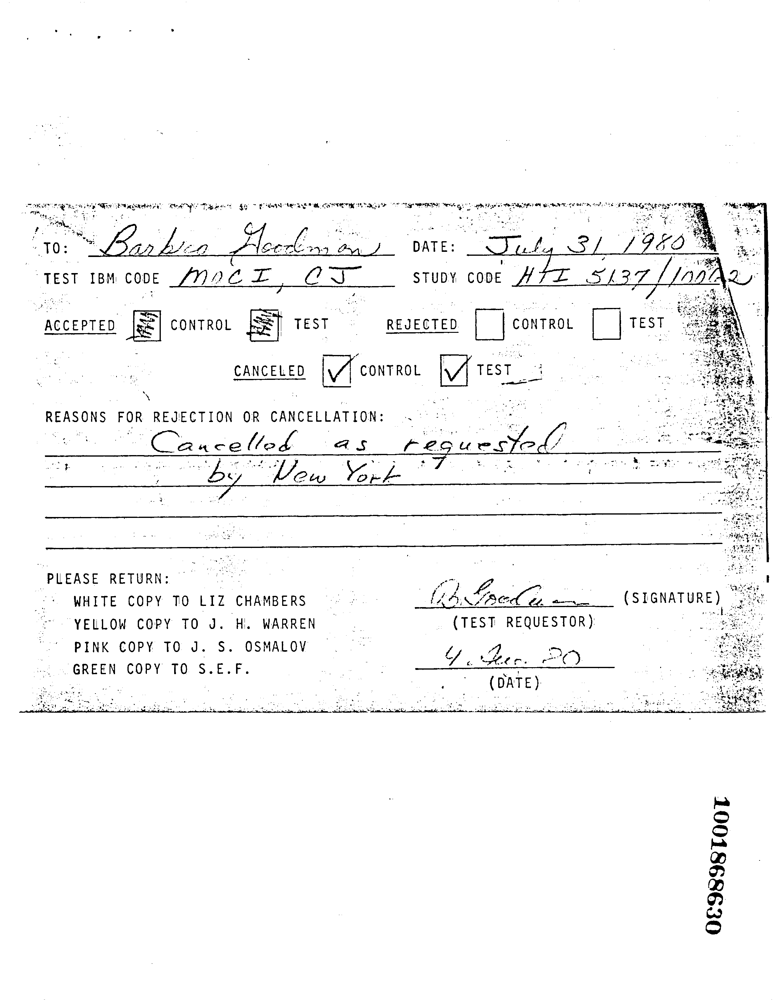 TO: Barbra Goodman DATE: July 31 1980
TEST IBM CODE MOCI, CJ STUDY CODE HTI 5137/
ACCEPTED CONTROL TEST REJECTED CONTROL TEST
CANCELED ✓ CONTROL ✓ TEST
REASONS FOR REJECTION OR CANCELLATION:
Cancelled as requested
by New York
PLEASE RETURN:
WHITE COPY TO LIZ CHAMBERS (SIGNATURE)
YELLOW COPY TO J. H. WARREN (TEST REQUESTOR)
PINK COPY TO J. S. OSMALOV
GREEN COPY TO S.E.F. (DATE)
1001868630